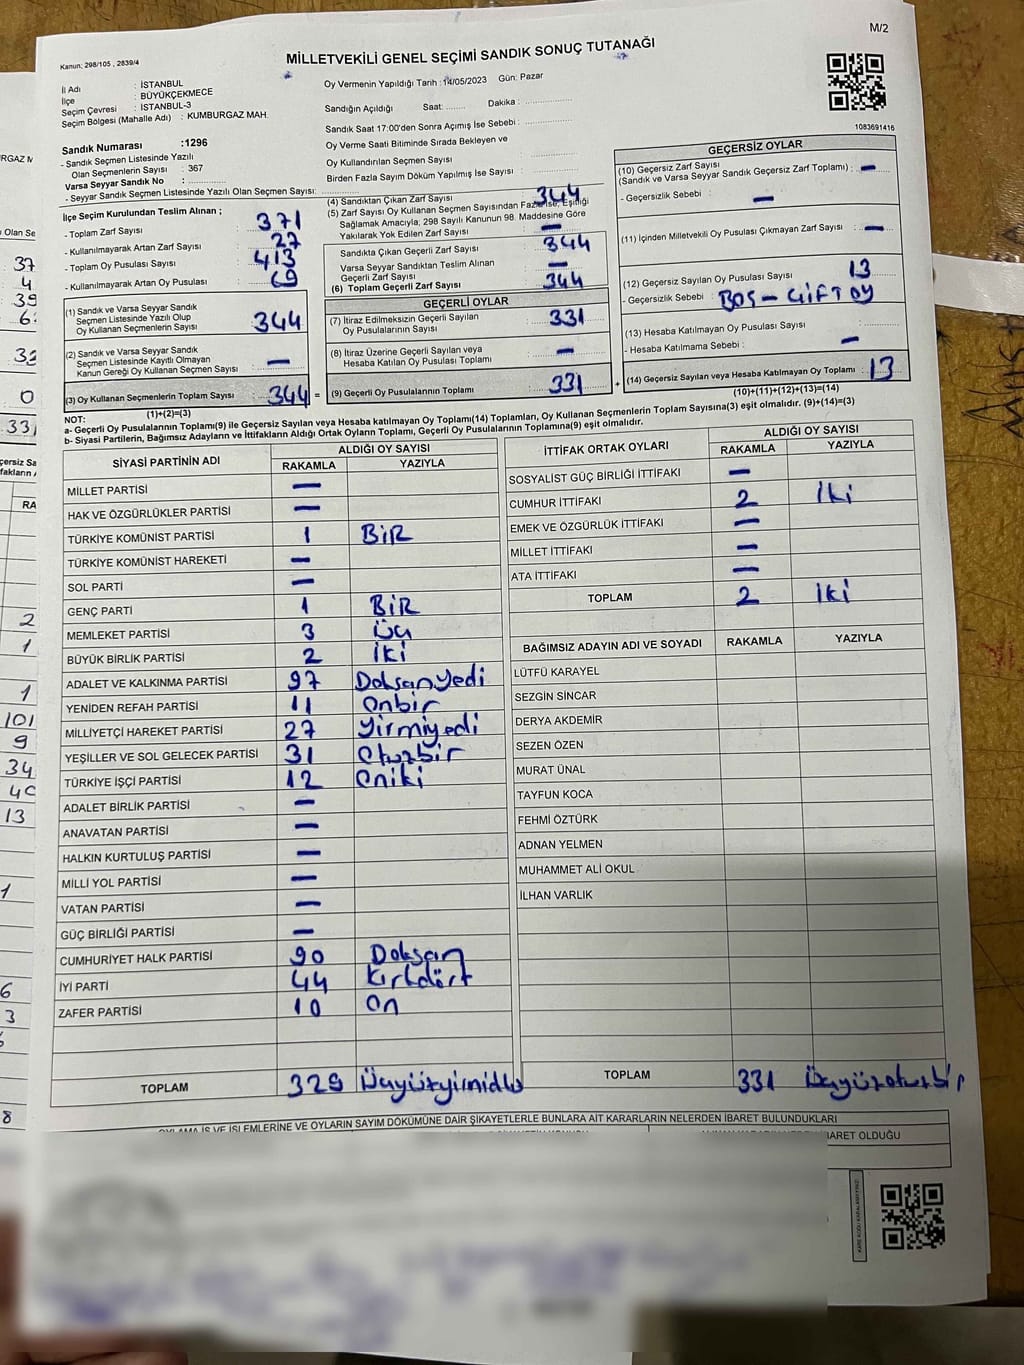 M/2
Kanun: 298/105 , 2839/4
MİLLETVEKİLİ GENEL SEÇİMİ SANDIK SONUÇ TUTANAĞI
İl Adı : İSTANBUL
İlçe : BÜYÜKÇEKMECE
Seçim Çevresi : İSTANBUL-3
Seçim Bölgesi (Mahalle Adı) : KUMBURGAZ MAH.
Sandık Numarası :1296
- Sandık Seçmen Listesinde Yazılı
Olan Seçmenlerin Sayısı : 367
Varsa Seyyar Sandık No :
- Seyyar Sandık Seçmen Listesinde Yazılı Olan Seçmen Sayısı:
Oy Vermenin Yapıldığı Tarih :14/05/2023 Gün: Pazar
Sandığın Açıldığı Saat: Dakika :
Sandık Saat 17:00'den Sonra Açımış İse Sebebi :
Oy Verme Saati Bitiminde Sırada Bekleyen ve
Oy Kullandırılan Seçmen Sayısı :
Birden Fazla Sayım Döküm Yapılmış İse Sayısı :
1083691416
İlçe Seçim Kurulundan Teslim Alınan ;
- Toplam Zarf Sayısı : 371
- Kullanılmayarak Artan Zarf Sayısı : 27
- Toplam Oy Pusulası Sayısı : 413
- Kullanılmayarak Artan Oy Pusulası : 69
(1) Sandık ve Varsa Seyyar Sandık
Seçmen Listesinde Yazılı Olup
Oy Kullanan Seçmenlerin Sayısı 344
(2) Sandık ve Varsa Seyyar Sandık
Seçmen Listesinde Kayıtlı Olmayan
Kanun Gereği Oy Kullanan Seçmen Sayısı : —
(3) Oy Kullanan Seçmenlerin Toplam Sayısı : 344 =
(1)+(2)=(3)
(4) Sandıktan Çıkan Zarf Sayısı 344
(5) Zarf Sayısı Oy Kullanan Seçmen Sayısından Fazla ise, Eşitliği
Sağlamak Amacıyla; 298 Sayılı Kanunun 98. Maddesine Göre
Yakılarak Yok Edilen Zarf Sayısı : —
Sandıkta Çıkan Geçerli Zarf Sayısı : 344
Varsa Seyyar Sandıktan Teslim Alınan
Geçerli Zarf Sayısı : —
(6) Toplam Geçerli Zarf Sayısı : 344
GEÇERLİ OYLAR
(7) İtiraz Edilmeksizin Geçerli Sayılan
Oy Pusulalarının Sayısı : 331
(8) İtiraz Üzerine Geçerli Sayılan veya
Hesaba Katılan Oy Pusulası Toplamı : —
(9) Geçerli Oy Pusulalarının Toplamı : 331 +
GEÇERSİZ OYLAR
(10) Geçersiz Zarf Sayısı
(Sandık ve Varsa Seyyar Sandık Geçersiz Zarf Toplamı) : —
- Geçersizlik Sebebi : —
(11) İçinden Milletvekili Oy Pusulası Çıkmayan Zarf Sayısı : —
(12) Geçersiz Sayılan Oy Pusulası Sayısı : 13
- Geçersizlik Sebebi : BOŞ - ÇİFT OY
(13) Hesaba Katılmayan Oy Pusulası Sayısı :
- Hesaba Katılmama Sebebi : —
(14) Geçersiz Sayılan veya Hesaba Katılmayan Oy Toplamı : 13
(10)+(11)+(12)+(13)=(14)
NOT:
a- Geçerli Oy Pusulaları Toplamı(9) ile Geçersiz Sayılan veya Hesaba katılmayan Oy Toplamı(14) Toplamları, Oy Kullanan Seçmenlerin Toplam Sayısına(3) eşit olmalıdır. (9)+(14)=(3)
b- Siyasi Partilerin, Bağımsız Adayların ve İttifakların Aldığı Ortak Oyların Toplamı, Geçerli Oy Pusulalarının Toplamına(9) eşit olmalıdır.
SİYASİ PARTİNİN ADI ALDIĞI OY SAYISI
RAKAMLA YAZIYLA
MİLLET PARTİSİ —
HAK VE ÖZGÜRLÜKLER PARTİSİ —
TÜRKİYE KOMÜNİST PARTİSİ 1 BİR
TÜRKİYE KOMÜNİST HAREKETİ —
SOL PARTİ —
GENÇ PARTİ 1 BİR
MEMLEKET PARTİSİ 3 Üç
BÜYÜK BİRLİK PARTİSİ 2 İki
ADALET VE KALKINMA PARTİSİ 97 Doksanyedi
YENİDEN REFAH PARTİSİ 11 Onbir
MİLLİYETÇİ HAREKET PARTİSİ 27 Yirmiyedi
YEŞİLLER VE SOL GELECEK PARTİSİ 31 Otuzbir
TÜRKİYE İŞÇİ PARTİSİ 12 Oniki
ADALET BİRLİK PARTİSİ —
ANAVATAN PARTİSİ —
HALKIN KURTULUŞ PARTİSİ —
MİLLİ YOL PARTİSİ —
VATAN PARTİSİ —
GÜÇ BİRLİĞİ PARTİSİ —
CUMHURİYET HALK PARTİSİ 90 Doksan
İYİ PARTİ 44 Kırkdört
ZAFER PARTİSİ 10 On
TOPLAM 329
İTTİFAK ORTAK OYLARI ALDIĞI OY SAYISI
RAKAMLA YAZIYLA
SOSYALİST GÜÇ BİRLİĞİ İTTİFAKI —
CUMHUR İTTİFAKI 2 İki
EMEK VE ÖZGÜRLÜK İTTİFAKI —
MİLLET İTTİFAKI —
ATA İTTİFAKI —
TOPLAM 2 İki
BAĞIMSIZ ADAYIN ADI VE SOYADI RAKAMLA YAZIYLA
LÜTFÜ KARAYEL
SEZGİN SİNCAR
DERYA AKDEMİR
SEZEN ÖZEN
MURAT ÜNAL
TAYFUN KOCA
FEHMİ ÖZTÜRK
ADNAN YELMEN
MUHAMMET ALİ OKUL
İLHAN VARLIK
TOPLAM 331 Üçyüzotuzbir
OYLAMA İŞ VE İŞLEMLERİNE VE OYLARIN SAYIM DÖKÜMÜNE DAİR ŞİKAYETLERLE BUNLARA AİT KARARLARIN NELERDEN İBARET BULUNDUKLARI
İBARET OLDUĞU